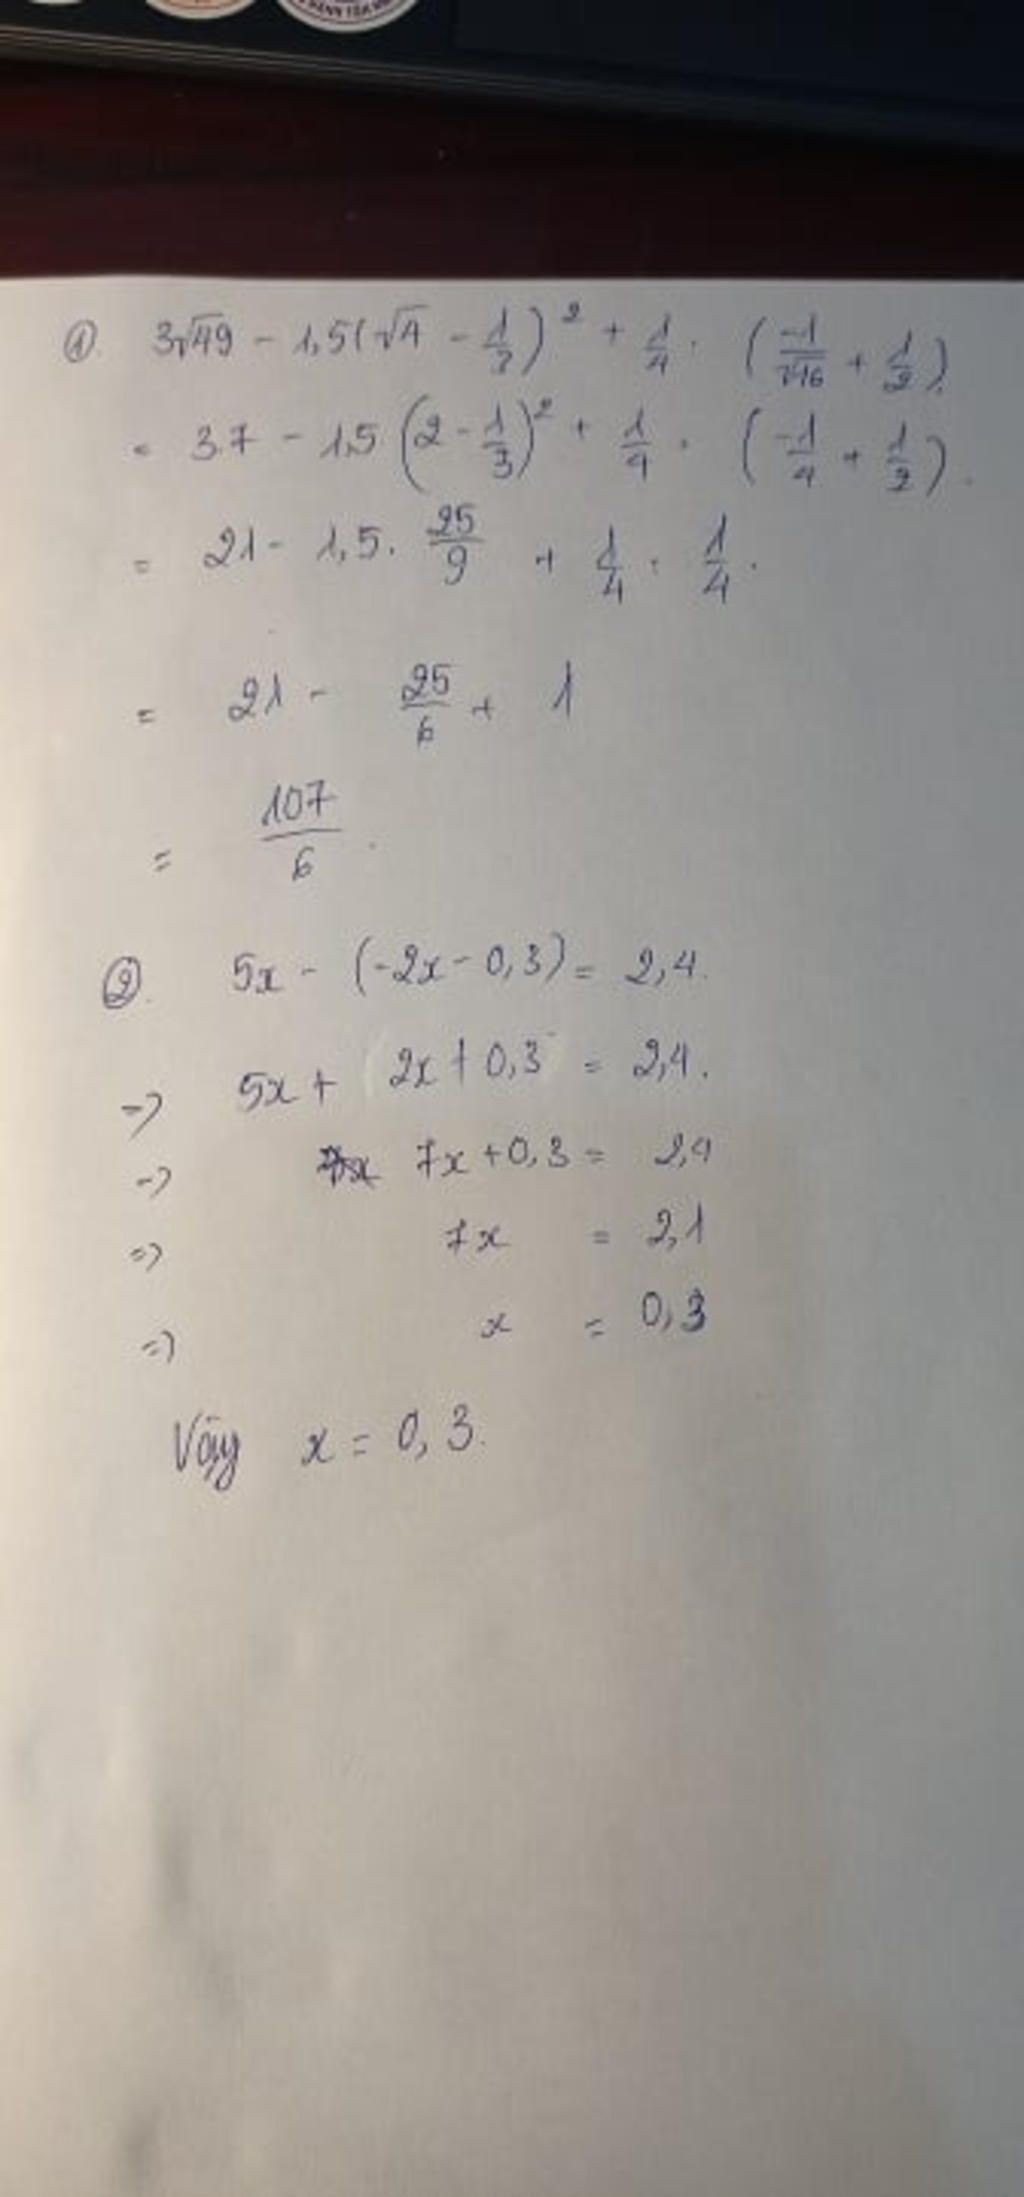 ①. 3√49 - 1,5(√4 - 1/3)² + 1/4 . (-1/√16 + 1/2).
= 3.7 - 1,5 (2 - 1/3)² + 1/4 . (-1/4 + 1/2).
= 21 - 1,5. 25/9 + 1/4 . 1/4.
= 21 - 25/6 + 1
= 107/6.
②. 5x - (-2x - 0,3) = 2,4.
=> 5x + 2x + 0,3 = 2,4.
=> 7x + 0,3 = 2,4
=> 7x = 2,1
=> x = 0,3
Vậy x = 0,3.